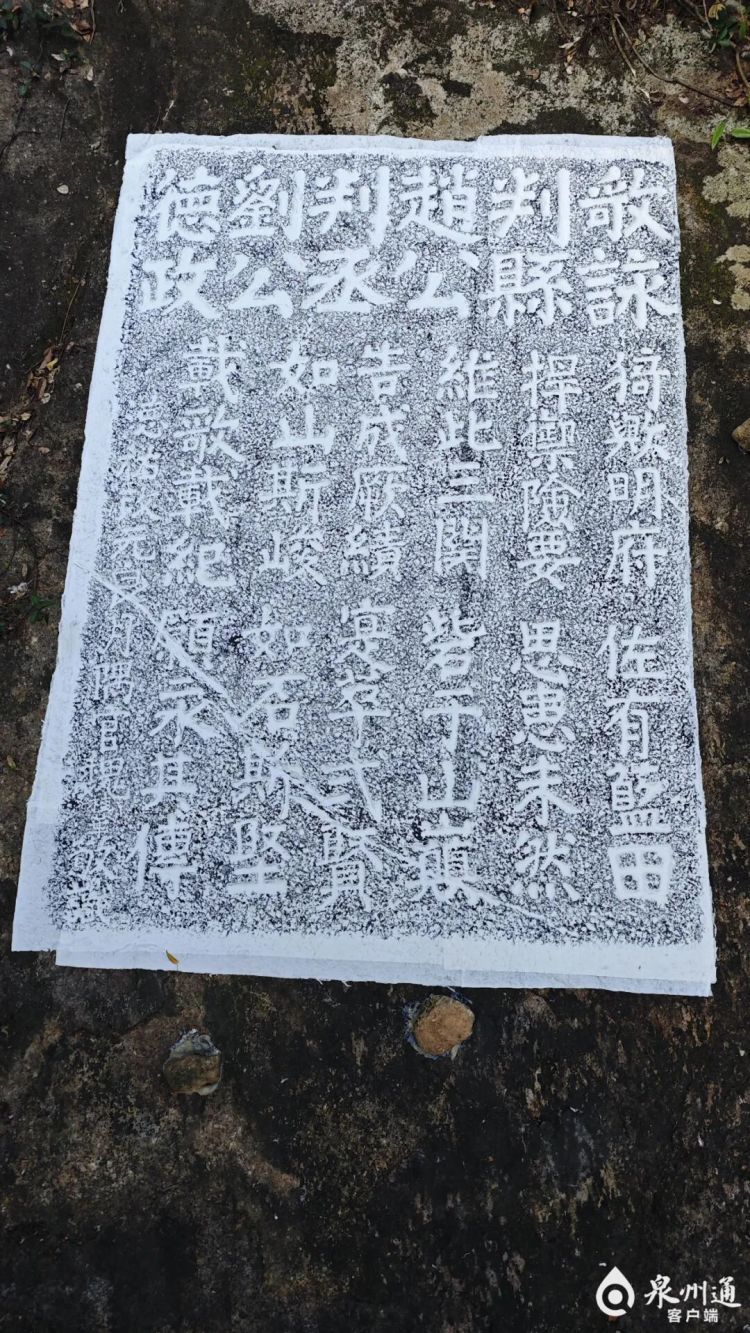 敬詠
判縣
趙公
判丞
劉公
德政
猗歟明府 佐有藍田
捍禦險要 思患未然
維此三関 砦于山巔
告成厥績 賢
如山斯峻 如石斯堅
載歌載紀 願永其傳
祐改元 月隅官
泉州通
客户端